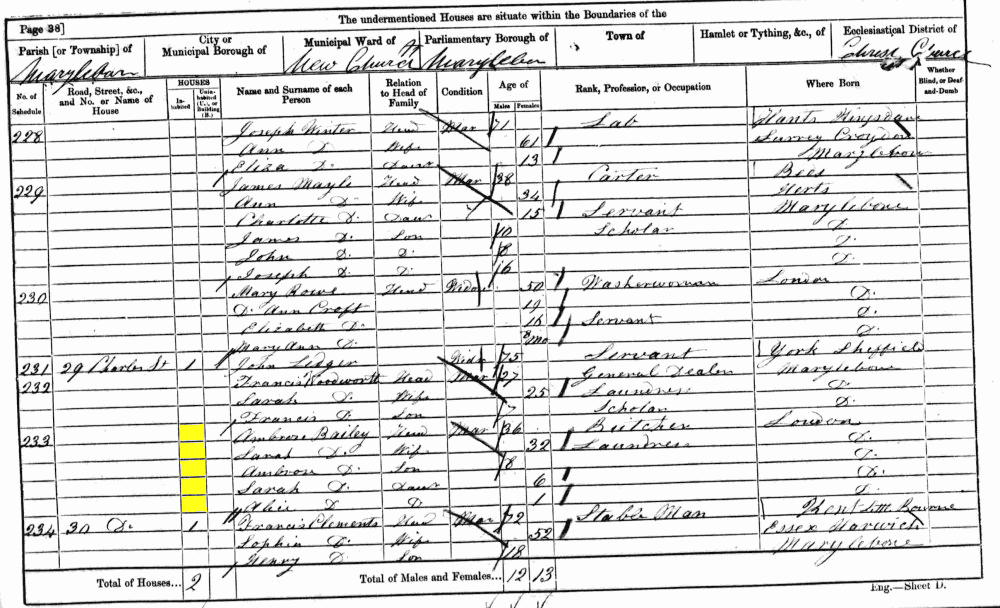 The undermentioned Houses are situate within the Boundaries of the
Page 38]
Parish [or Township] of Marylebon
City or Municipal Borough of
Municipal Ward of New Church St
Parliamentary Borough of Marylebon
Town of
Hamlet or Tything, &c., of
Ecclesiastical District of Christ Church
No. of Schedule
Road, Street, &c., and No. or Name of House
HOUSES
In-habited
Unin-habited (U.), or Building (B.)
Name and Surname of each Person
Relation to Head of Family
Condition
Age of
Males
Females
Rank, Profession, or Occupation
Where Born
Whether Blind, or Deaf-and-Dumb
228 Joseph Winter Head Mar 71 Lab Hants
Ann Do Wife 61 Surrey Croydon
Eliza Do Daur 13 Marylebone
229 James Mayle Head Mar 38 Carter
Ann Do Wife 34 Herts
Charlotte Do Daur 15 Servant Marylebone
James Do Son 10 Scholar Do
John Do Do 8 Do
Joseph Do Do 6 Do
230 Mary Rowe Head Widow 50 Washerwoman London
Do Ann Croft 19 Do
Elizabeth Do 16 Servant Do
Mary Ann Do Mo Do
231 29 Charles St 1 John Ledger Widr 75 Servant York Sheffield
232 Francis Woodworth Head Mar 27 General Dealer Marylebone
Sarah Do Wife 25 Laundress Do
Francis Do Son 7 Scholar Do
233 Ambrose Bailey Head Mar 36 Butcher London
Sarah Do Wife 32 Laundress Do
Ambrose Do Son 8 Do
Sarah Do Daur 6 Do
Do Do 1 Do
234 30 Do 1 Francis Clements Head Mar 72 Stable Man Kent Bourne
Sophia Do Wife 52 Essex Harwich
Henry Do Son 18 Marylebone
Total of Houses... 2
Total of Males and Females... 12 13
Eng.—Sheet D.